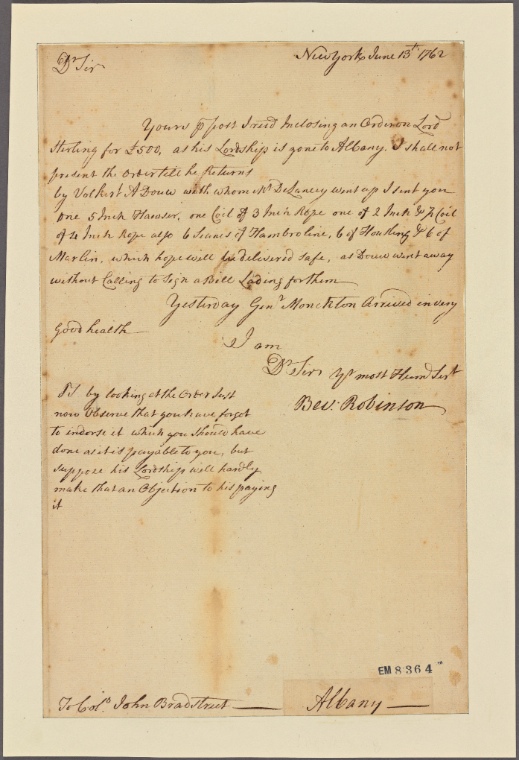 New York June 13th 1762
Dr Sir
Yours p post I recd Inclosing an Order on Lord
Sterling for £500, as his Lordship is gone to Albany. I shall not
present the order till he Returns
by Volkert A Douw with whom Mr DeLancey went up I sent you
one 5 Inch Hawser, one Coil of 3 Inch Rope one of 2 Inch & ½ Coil
of 4 Inch Rope also 6 of Hambroline, 6 of Housling & 6 of
Marlin, which hope will be delivered safe, as Douw went away
without Calling to Sign a Bill Lading for them
Yesterday Genl Monckton Arrived in very
good health
I am
Dr Sir Yr most Hum Sert
Bev: Robinson
PS by looking at the Order Just
now Observe that you have forgot
to endorse it which you should have
done as it is payable to you, but
suppose his Lordship will hardly
make that an Objection to his paying
it
EM 8364
To Colo John Bradstreet Albany